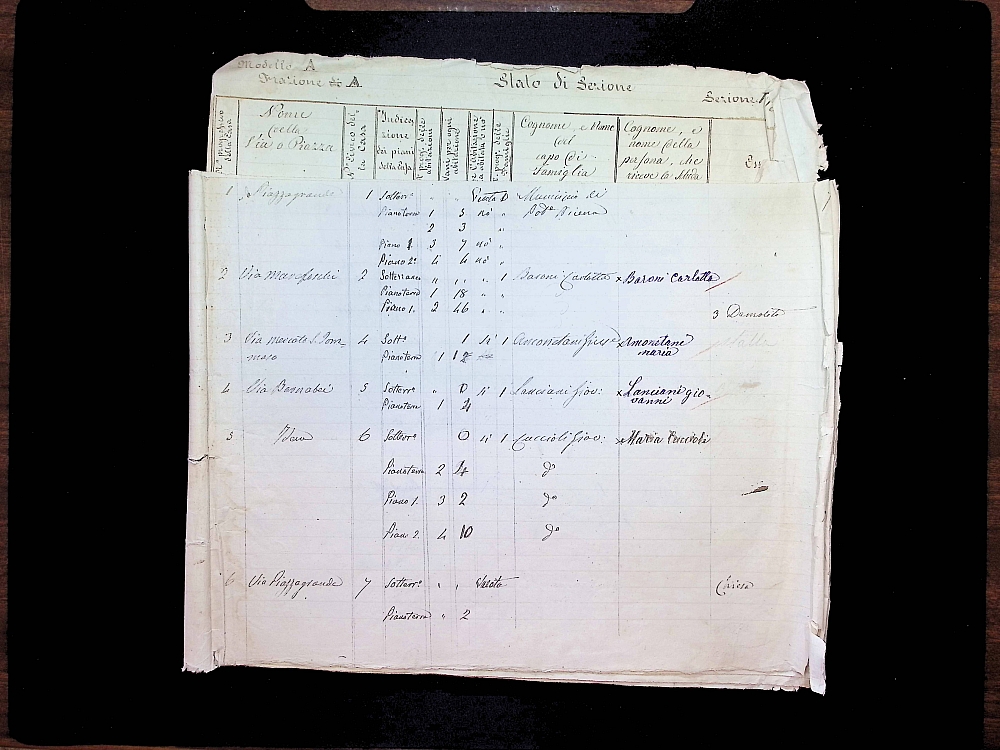 Modello A
Frazione di A.
Stato di Sezione
Sezione
N° progressivo della Casa
Nome della Via o Piazza
N° Civico della Casa
Indicazione dei piani della Casa
N° prog. delle abitazioni
Vani per ogni abitazione
Se l'abitazione è abitata o nò
N° prog. delle Famiglie
Cognome, e Nome del capo di famiglia
Cognome, e nome della persona, che riceve la scheda
1 Piazzagrande 1 Sotterr° " " Vuoto 0 Municipio di
Pianoterra 1 3 nò " Pod° Vicena
2 3 "
Piano 1. 3 7 nò "
Piano 2° 4 4 nò "
2 Via 2 Sotterraneo " " " 1 Baroni Carlotta x Baroni Carlotta
Pianoterra 1 18 " "
Piano 1. 2 46 " "
3 Demolito
3 Via mercato S. Tommaso 4 Sott° 1 si 1 x
Pianoterra 1 2 maria
4 Via Barnabei 5 Sotterr° " 0 si 1 Lanciani Giov: x Lanciani giovanni
Pianoterra 1 4
5 Idem 6 Sotterr° 0 si 1 Cuccioli Giov: x Maria Cuccioli
Pianoterra 2 4 d°
Piano 1. 3 2 d°
Piano 2. 4 10 d°
6 Via Piazzagrande 7 Sotterr° " " Vuoto Chiesa
Pianoterra " 2